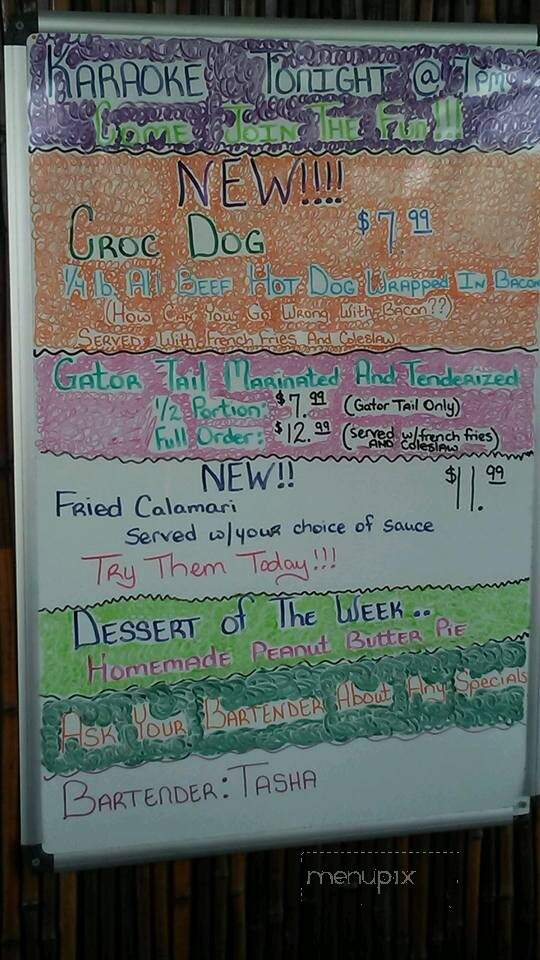 KARAOKE TONIGHT @ 7PM
COME JOIN THE FUN!!!
NEW!!!!
CROC DOG $7.99
1/4 lb. All BEEF HOT DOG WRAPPED IN BACON
(HOW CAN YOU GO WRONG WITH BACON??)
SERVED WITH FRENCH FRIES AND COLESLAW
GATOR TAIL MARINATED AND TENDERIZED
1/2 PORTION: $7.99 (Gator Tail Only)
FULL ORDER: $12.99 (served w/french fries)
AND COLESLAW
NEW!! $11.99
FRIED CALAMARI
SERVED w/your choice of sauce
TRY THEM TODAY!!!
DESSERT of THE WEEK..
HOMEMADE PEANUT BUTTER PIE
ASK YOUR BARTENDER ABOUT ANY SPECIALS
BARTENDER: TASHA
menupix